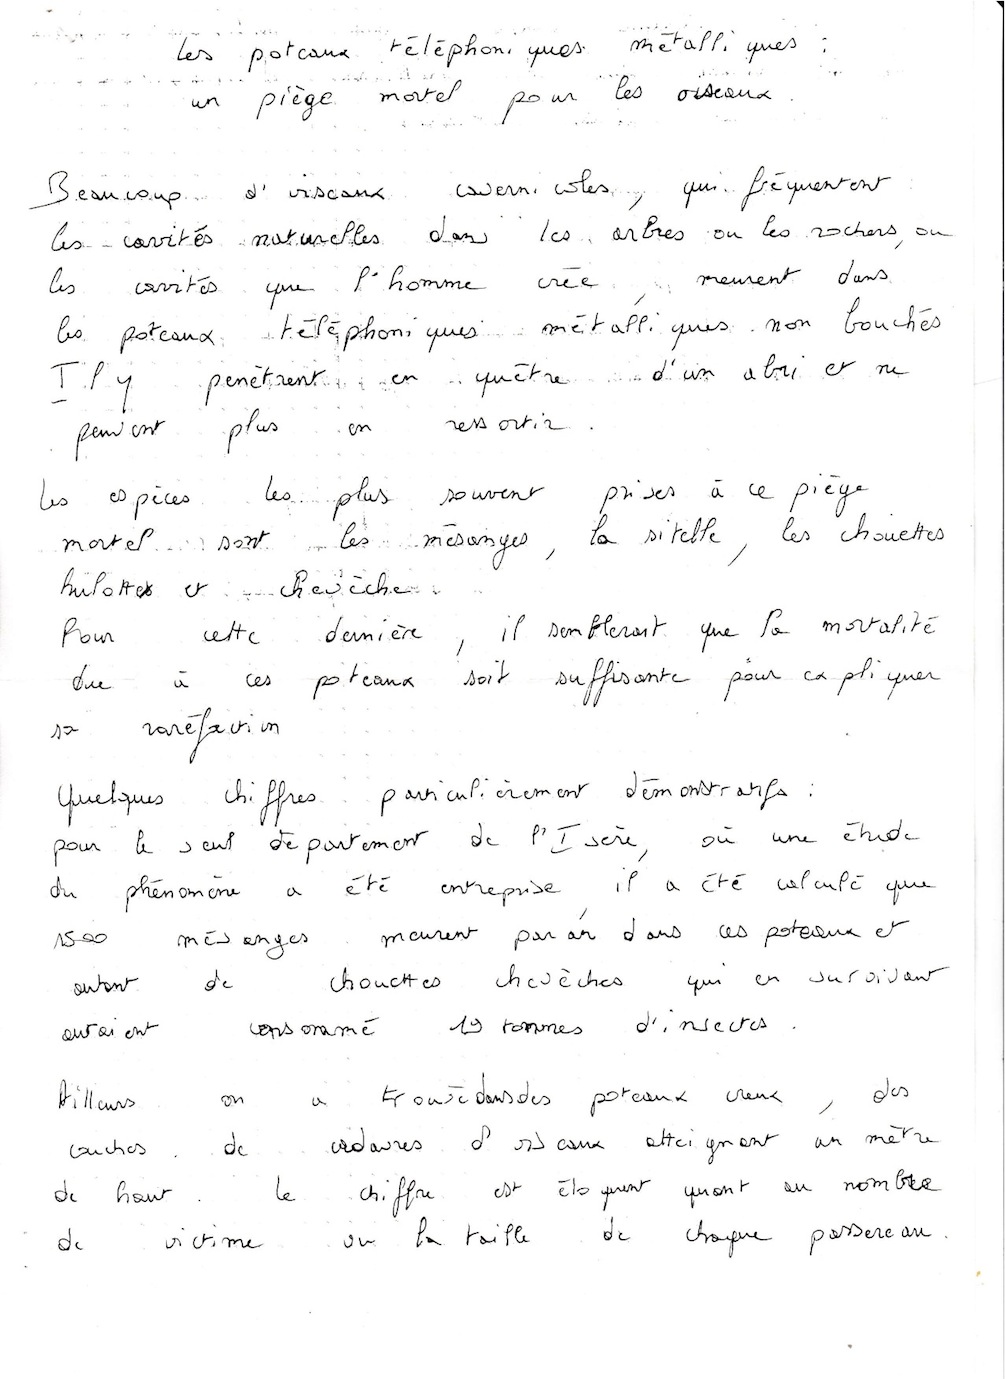 Les poteaux téléphoniques métalliques :
un piège mortel pour les oiseaux.
Beaucoup d'oiseaux cavernicoles, qui fréquentent
les cavités naturelles dans les arbres ou les rochers, ou
les cavités que l'homme crée, meurent dans
les poteaux téléphoniques métalliques non bouchés
Il y penètrent en quête d'un abri et ne
peuvent plus en ressortir.
Les espèces les plus souvent prises à ce piège
mortel sont les mésanges, la sitelle, les chouettes
hulottes et chevêche.
Pour cette dernière, il semblerait que la mortalité
due à ces poteaux soit suffisante pour expliquer
sa raréfaction
Quelques chiffres particulièrement démonstratifs :
pour le seul département de l'Isère, où une étude
du phénomène a été entreprise, il a été calculé que
1500 mésanges meurent par an dans ces poteaux et
autant de chouettes chevêches qui en survivant
auraient consommé 19 tonnes d'insectes.
Ailleurs on a trouvé dans des poteaux creux, des
couches de cadavres d'oiseaux atteignant un mètre
de haut. Le chiffre est éloquent quant au nombre
de victime vu la taille de chaque passereau.